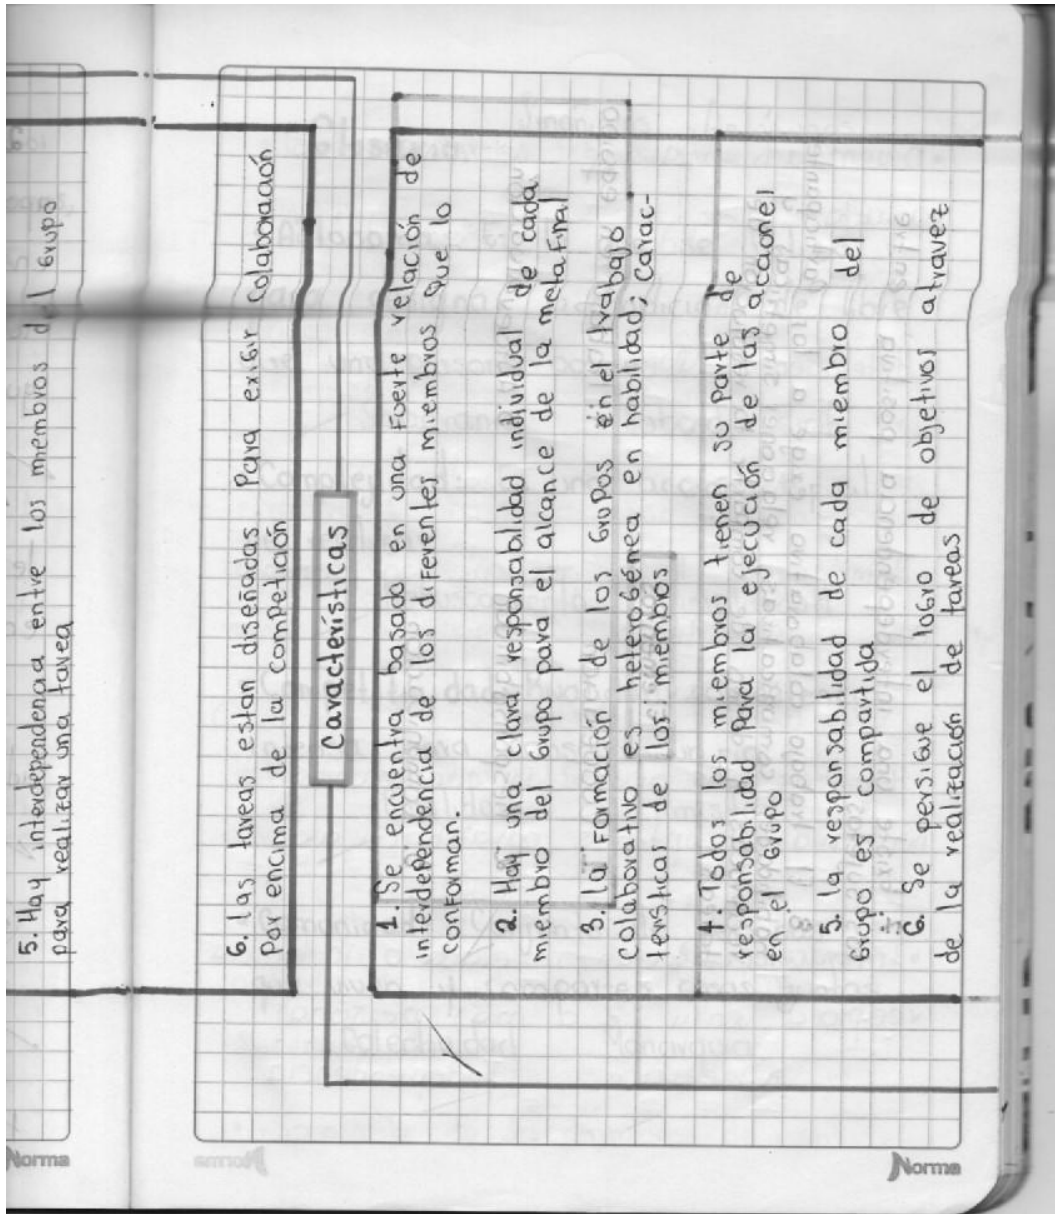 5. Hay interdependencia entre los miembros del Grupo
para realizar una tarea
6. las tareas estan diseñadas Para exigir Colaboración
Por encima de la competición
Características
1. Se encuentra basado en una Fuerte relación de
interdependencia de los diferentes miembros que lo
conforman.
2. Hay una clara responsabilidad individual de cada
miembro del Grupo para el alcance de la meta final
3. la Formación de los Grupos en el trabajo
colaborativo es heterogénea en habilidad; carac-
terísticas de los miembros
4. Todos los miembros tienen su parte de
responsabilidad Para la ejecución de las acciones
en el Grupo
5. la responsabilidad de cada miembro del
Grupo es compartida
6. Se persigue el logro de objetivos atravez
de la realización de tareas
Norma
Norma